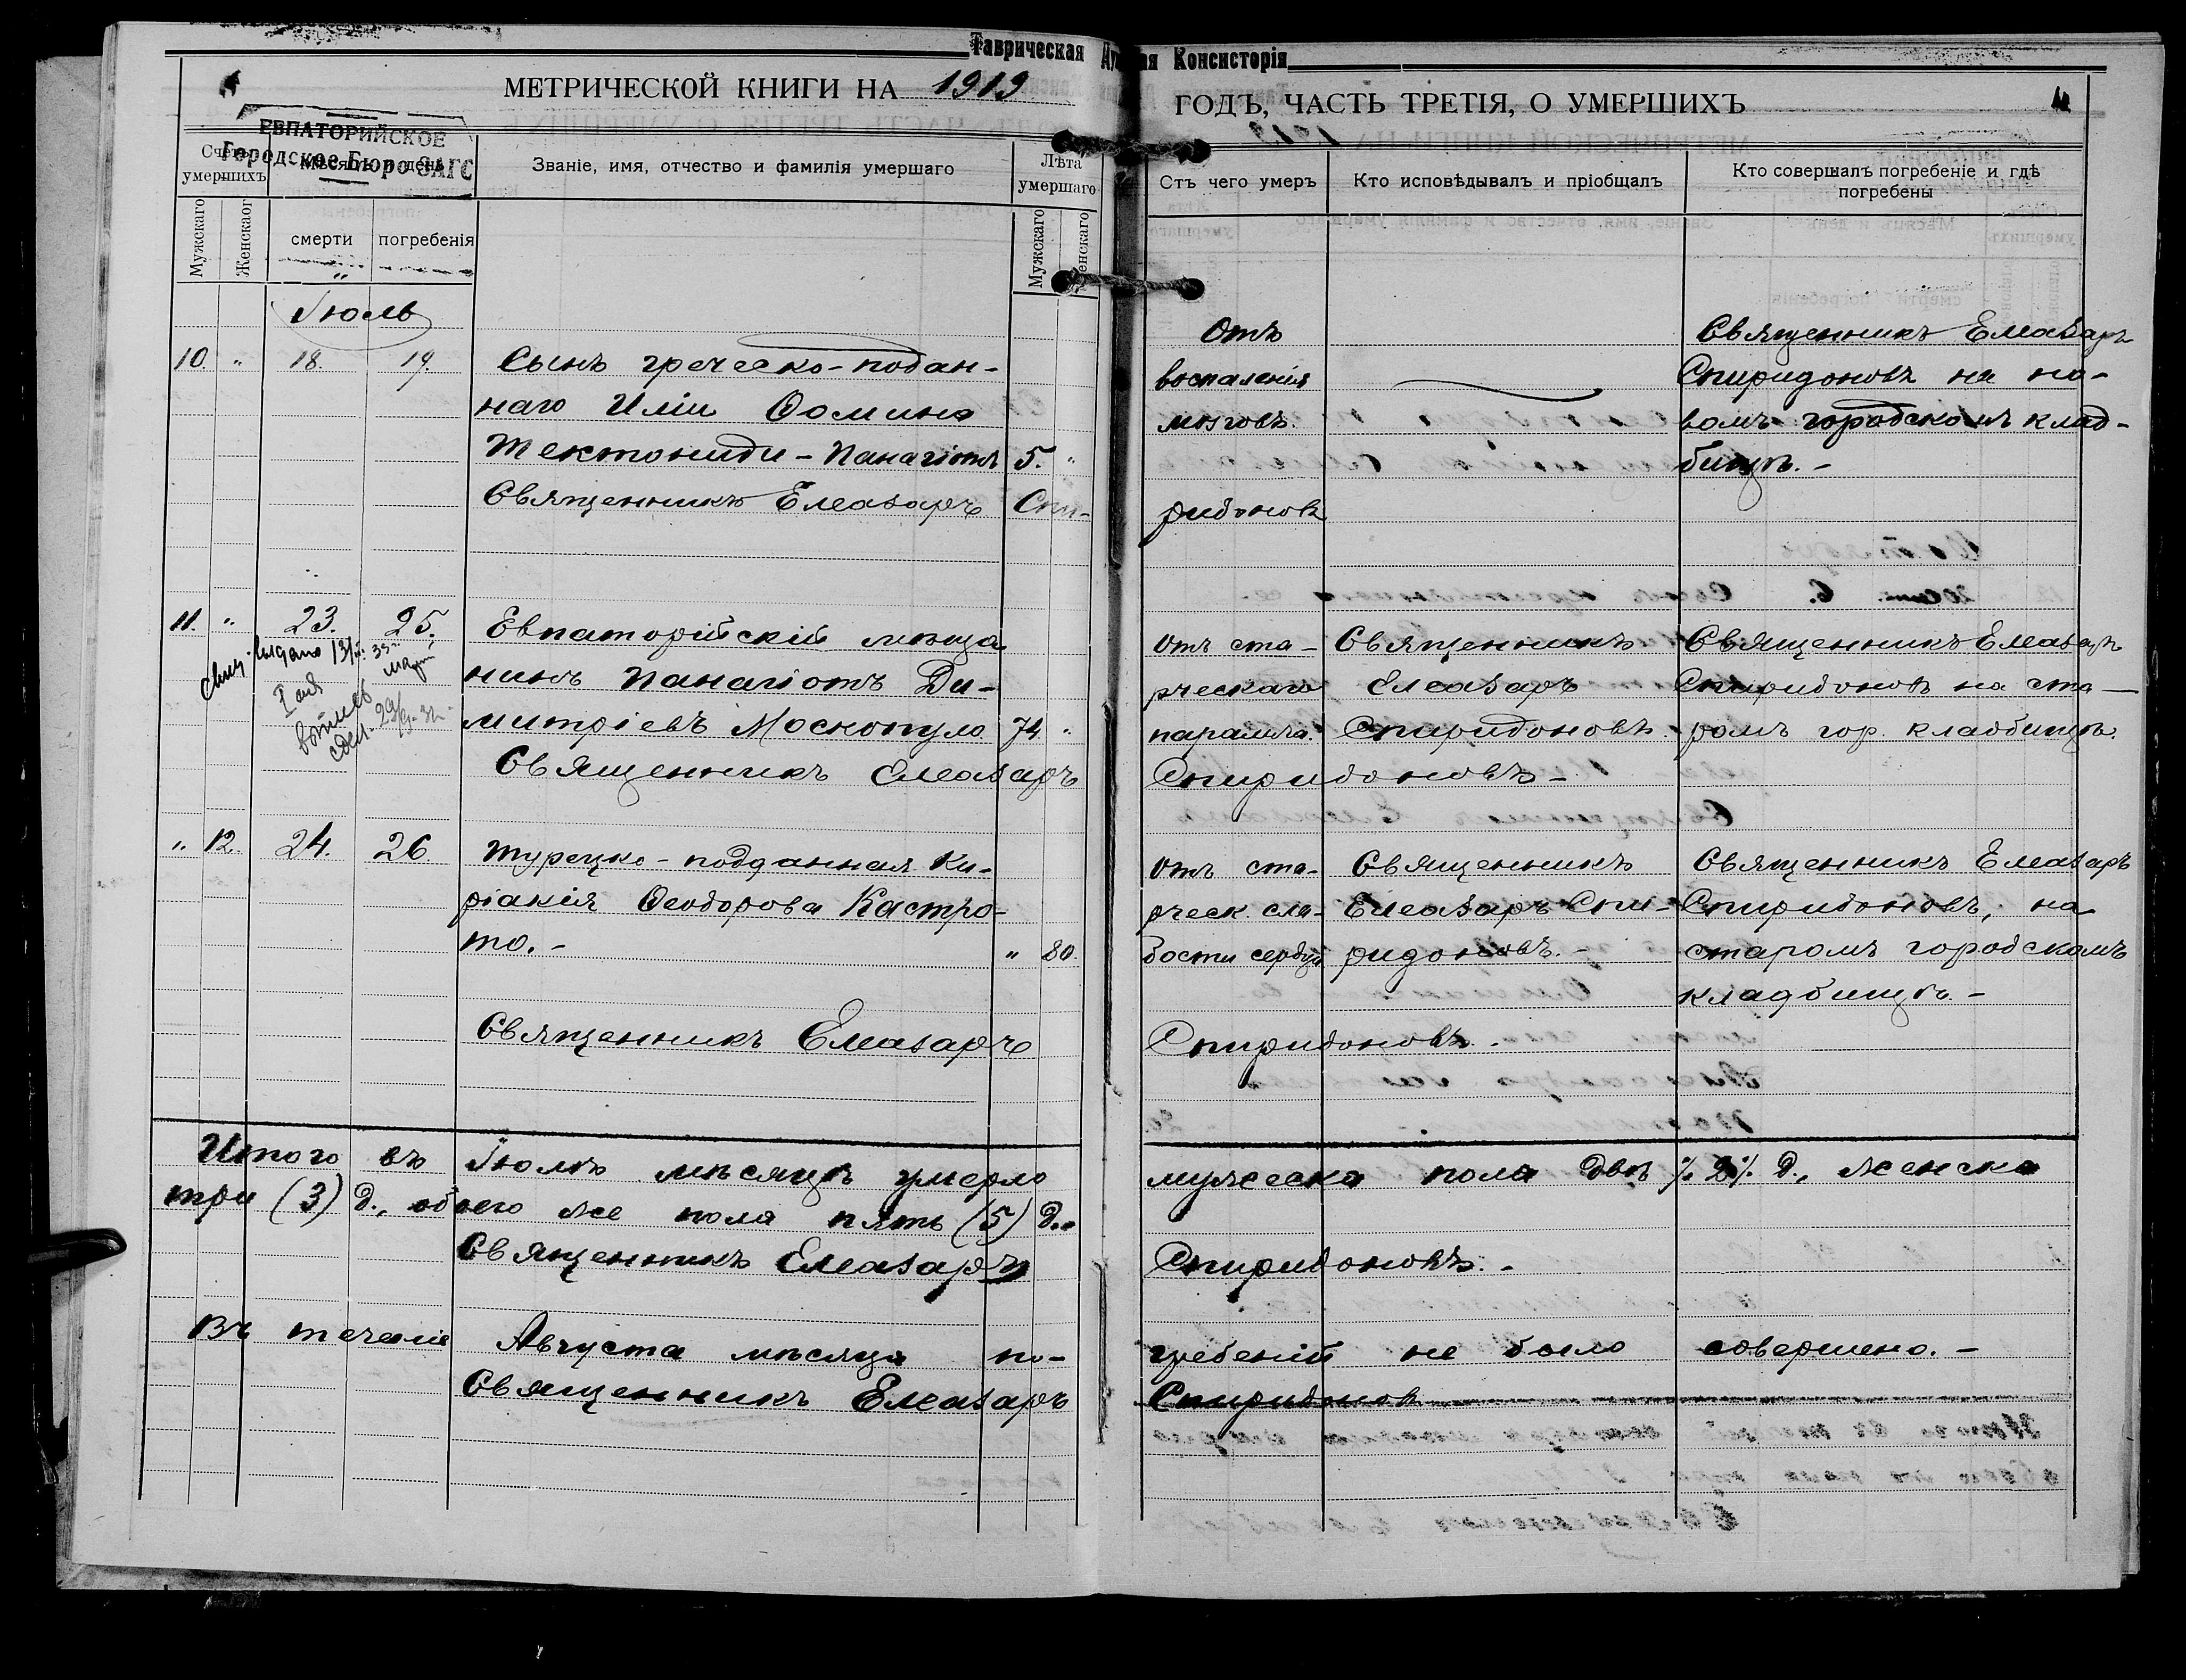 Таврическая Ду ая Консисторія
МЕТРИЧЕСКОЙ КНИГИ НА 1919
ГОДЪ, ЧАСТЬ ТРЕТІЯ, О УМЕРШИХЪ
ЕВПАТОРИЙСКОЕ
Городское Бюро ЗАГС
Счетъ умершихъ
Мѣсяцъ и день
Званіе, имя, отчество и фамилія умершаго
Лѣта умершаго
Мужскаго
Женскаог
смерти
погребенія
Мужскаго
Женскаго
Стъ чего умеръ
Кто исповѣдывалъ и пріобщалъ
Кто совершалъ погребеніе и гдѣ
погребены
Іюль
10. " 18. 19. Сынъ греческо-подан-
наго Иліи Ѳомина
Тектониди-Панагіотъ 5. "
Священникъ Елеазаръ Спи-
Отъ
воспаленія
мозговъ.
ридоновъ
Священникъ Елеазаръ
Спиридоновъ на но-
вомъ городскомъ клад-
бищѣ.-
11. " 23. 25. Евпаторійскій мѣща
нинъ Панагіотъ Ди-
митріевъ Москопуло 74 "
Священникъ Елеазаръ
отъ ста-
рческаго
паралича.
Спиридоновъ-
Священникъ
Елеазаръ
Спиридоновъ.
Священникъ Елеазаръ
Спиридоновъ на ста-
ромъ гор. кладбищѣ.
" 12. 24. 26 Турецко-подданная Ки-
ріакія Ѳеодорова Кастро-
то.- " 80.
Священникъ Елеазаръ
отъ ста-
рческ. сла-
бости сердца
Спиридоновъ.-
Священникъ
Елеазаръ Спи-
ридоновъ.-
Священникъ Елеазаръ
Спиридоновъ, на
старомъ городскомъ
кладбищѣ.-
Итого въ Іюлѣ мѣсяцѣ умерло мужеска пола двѣ /. 2 /. д., женска
три (3) д., обоего же пола пять (5) д.
Священникъ Елеазаръ Спиридоновъ.-
Въ теченіе Августа мѣсяца по- гребеній не было совершено.-
Священникъ Елеазаръ Спиридоновъ